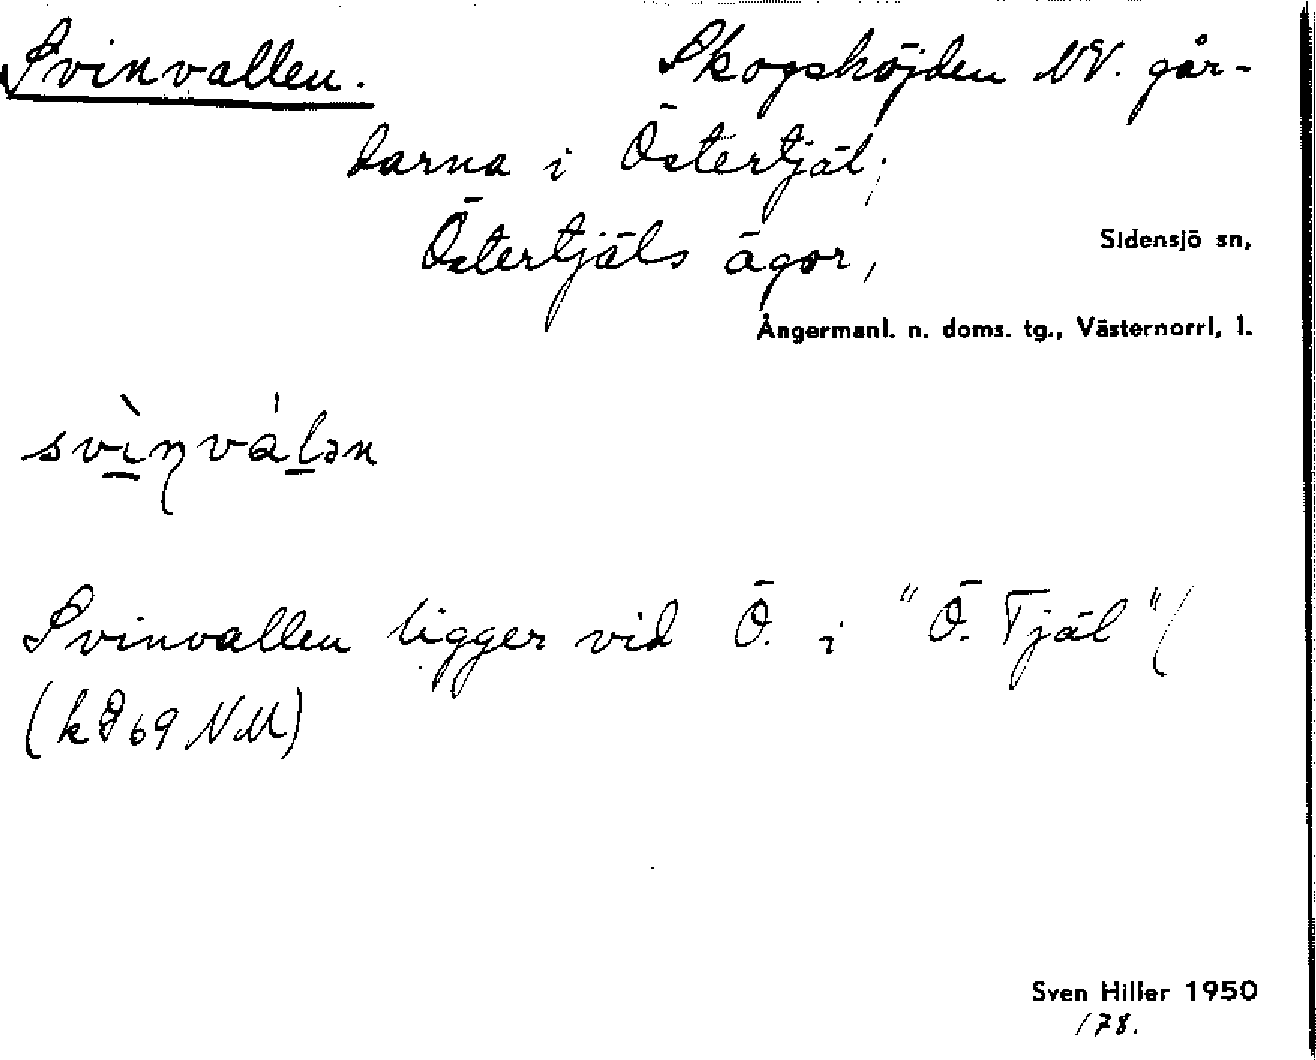 Svinvallen. Skogshöjden NV. går-
darna i Östertjäl;
Östertjäls ägor,
Sidensjö sn,
Ångermanl. n. doms. tg., Västernorrl. l.
svìnválən
Svinvallen ligger vid Ö. i "Ö. Tjäl" (
(k 69 NM)
Sven Hiller 1950
178.